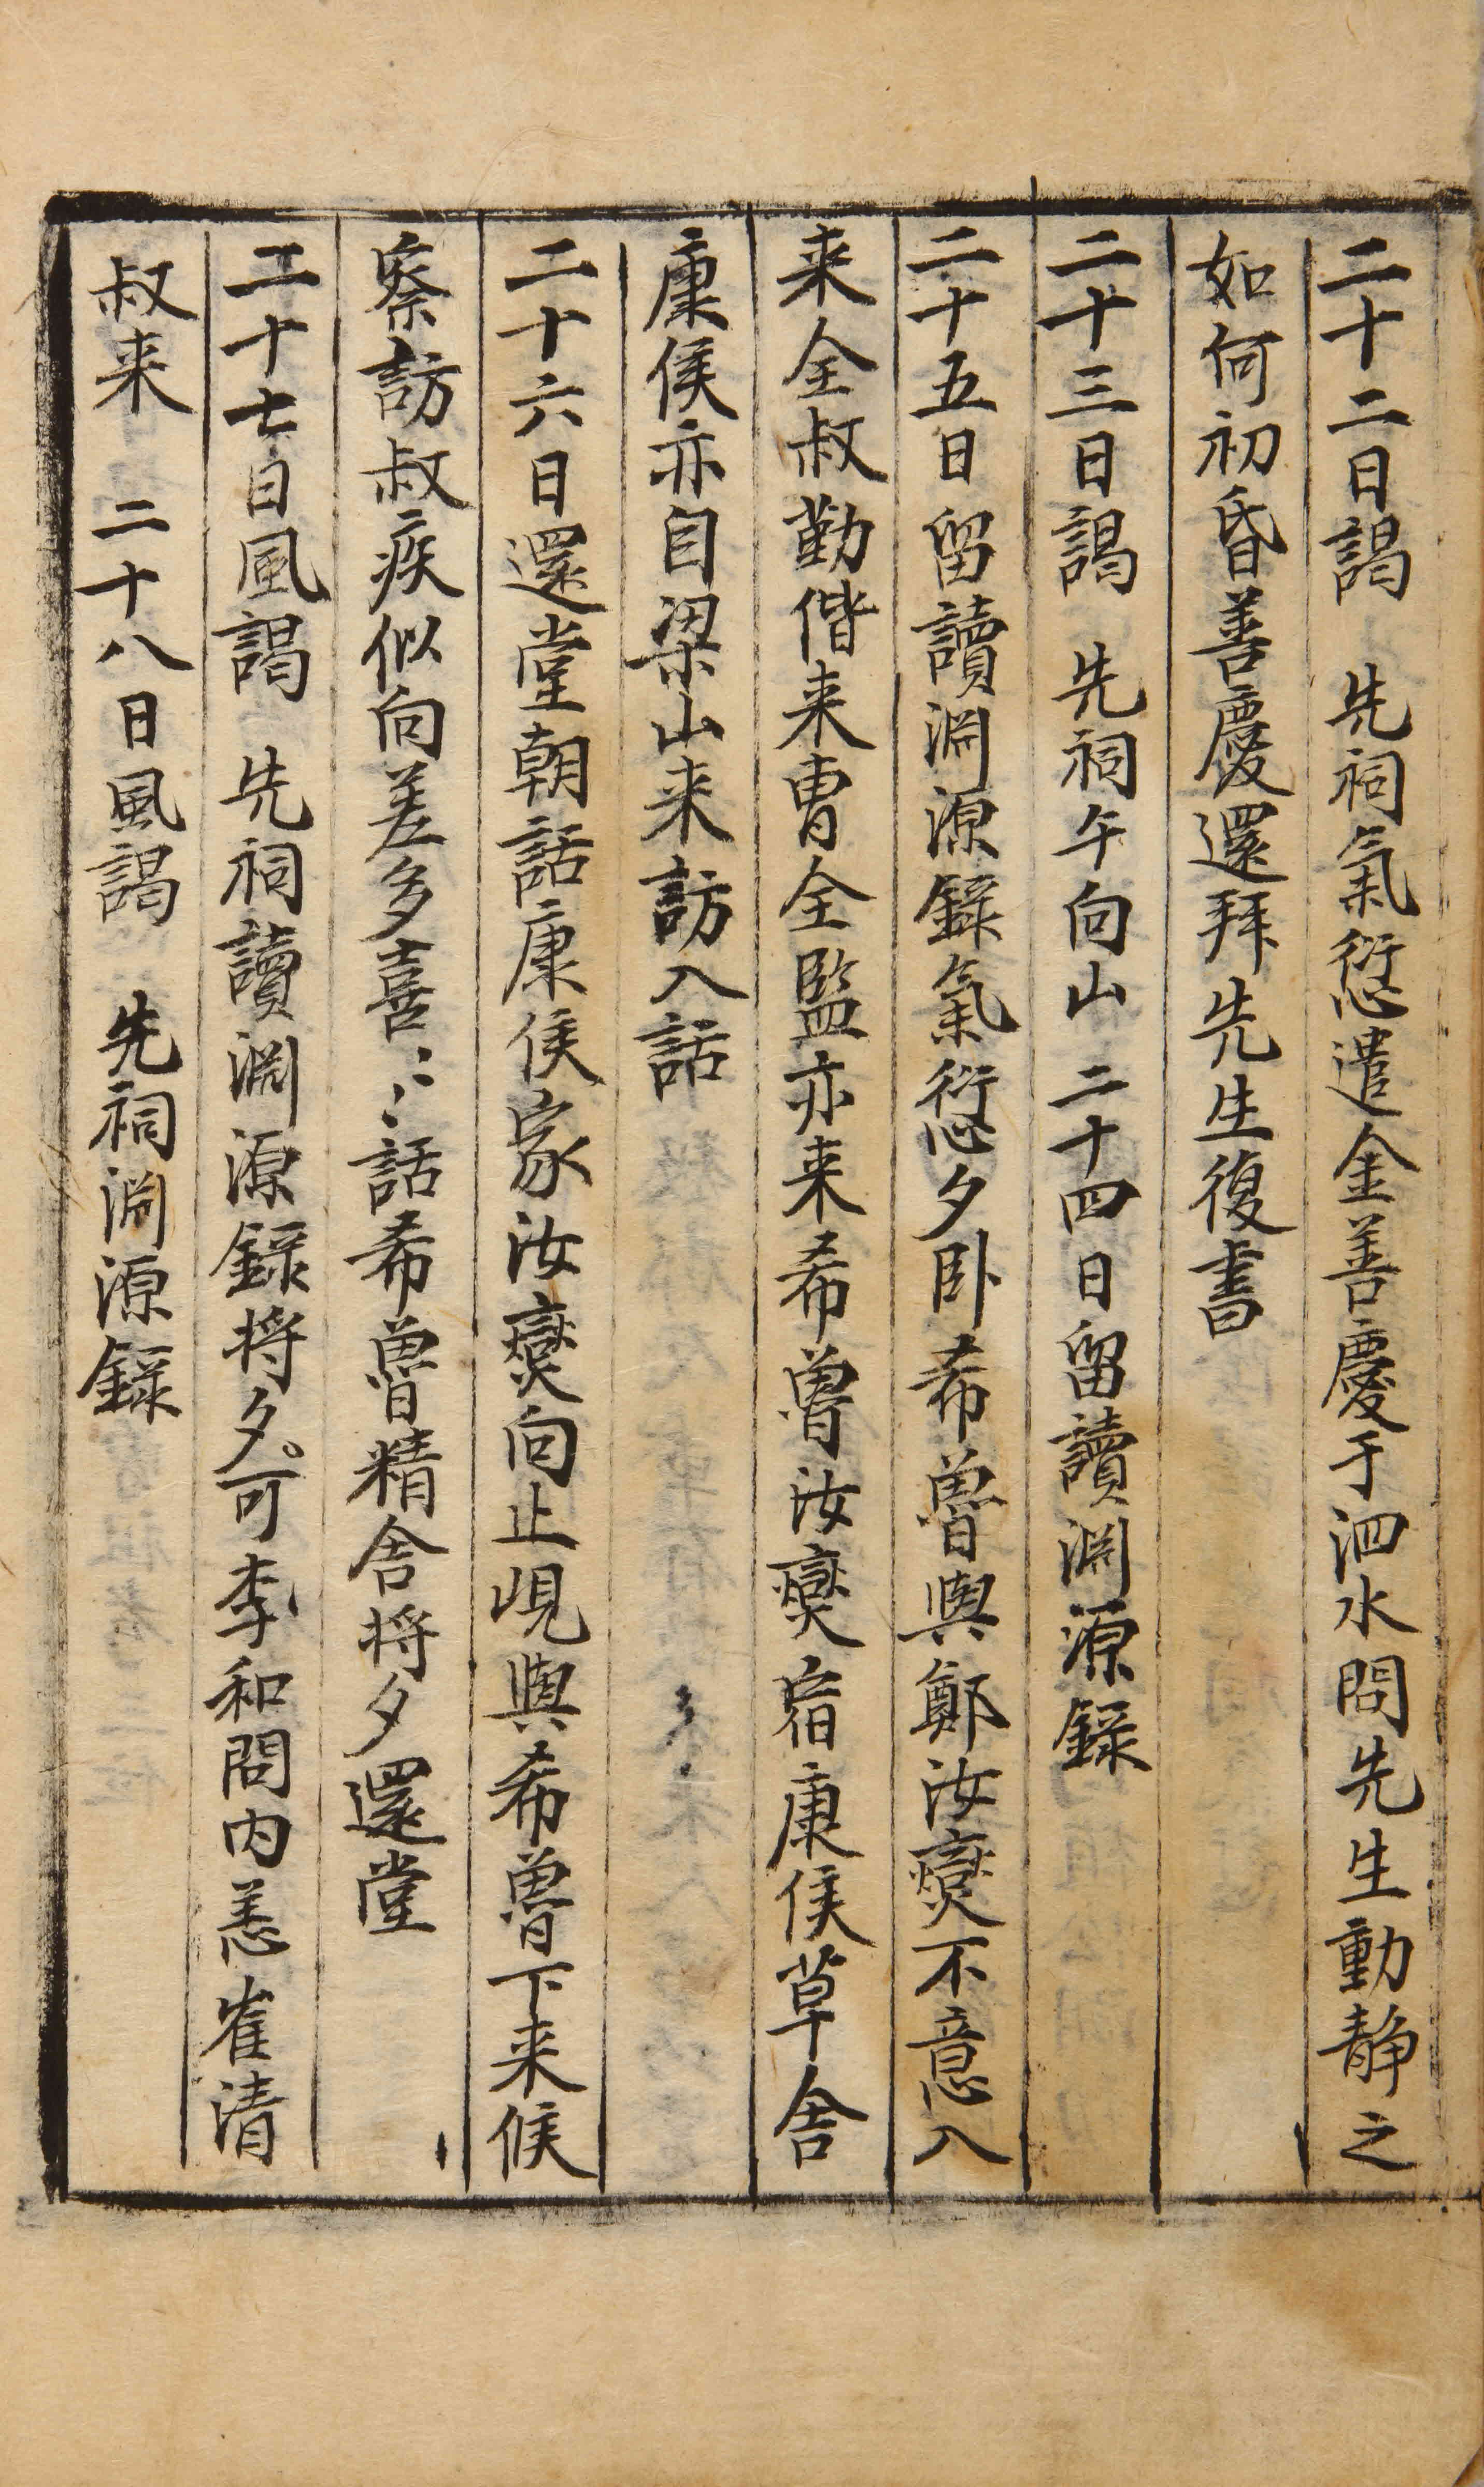 二十二日謁 先祠氣愆遣金善慶于泗水問先生動靜之
如何初昏善慶還拜先生復書
二十三日謁 先祠午向山 二十四日留讀淵源錄
二十五日留讀淵源錄氣愆夕卧希魯與鄭汝燮不意入
来全叔勸偕来曺全監亦来希魯汝燮宿康侯草舍
康侯亦自梁山来訪入話
二十六日還堂朝話康侯家汝燮向止峴與希魯下来候
察訪叔疾似向差多喜〻〻話希魯精舍将夕還堂
二十七日風謁 先祠讀淵源錄将夕可李和問内恙崔清
叔来 二十八日風謁 先祠淵源錄